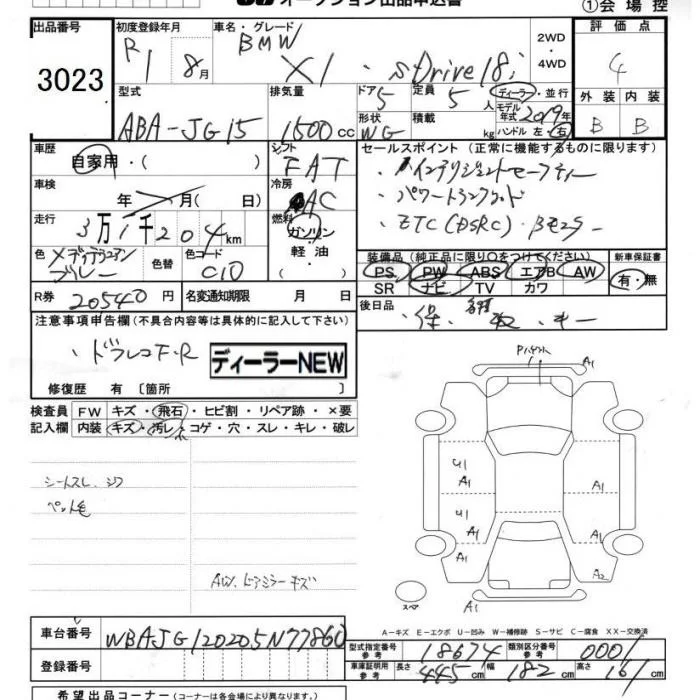 オークション出品申込書
①会場控
出品番号
3023
初度登録年月
R1 8月
車名・グレード
BMW X1 ・ sDrive18i
2WD
・
4WD
評価点
4
型式
ABA-JG15
排気量
1500cc
ドア 5
形状 WG
定員 5人
積載 kg
ディーラー・並行
モデル年式 2019年
ハンドル 左・右
外装 内装
B B
車歴
自家用・( )
シフト
FAT
セールスポイント（正常に機能するものに限ります）
・インテリジェントセーフティー
・パワートランクリッド
・ETC(DSRC)・Bモニター
車検
年 月( 日)
冷房
AC
走行
3万1千204km
燃料
ガソリン
・
軽油
・
色 メディテラニアンブルー
色替
色コード
C10
装備品（純正品に限り○をつけてください）
PS PW ABS エアB AW
SR ナビ TV カワ
新車保証書
有・無
R券 20540円
名変通知期限 月 日
後日品
・保 ・取 ・キー
注意事項申告欄（不具合内容等は具体的に記入して下さい）
・ドラレコF・R
ディーラーNEW
修復歴 有〔箇所 〕
検査員記入欄
FW キズ・飛石・ヒビ割・リペア跡・×要
内装 キズ・汚レ・コゲ・穴・スレ・キレ・破レ
シートスレ、シワ
ペット毛
AW、ドアミラーキズ
A1
A1
U1
A1
A1
U1
A1
A1
A1
A2
A1
スペア
A－キズ E－エクボ U－凹み W－補修跡 S－サビ C－腐食 XX－交換済
車台番号
WBAJG120205N77860
登録番号
型式指定番号 参考 18674
類別区分番号 参考 0001
車庫証明用 参考
長さ 445cm 幅 182cm 高さ 161cm
希望出品コーナー（コーナーは各会場により異なります。）